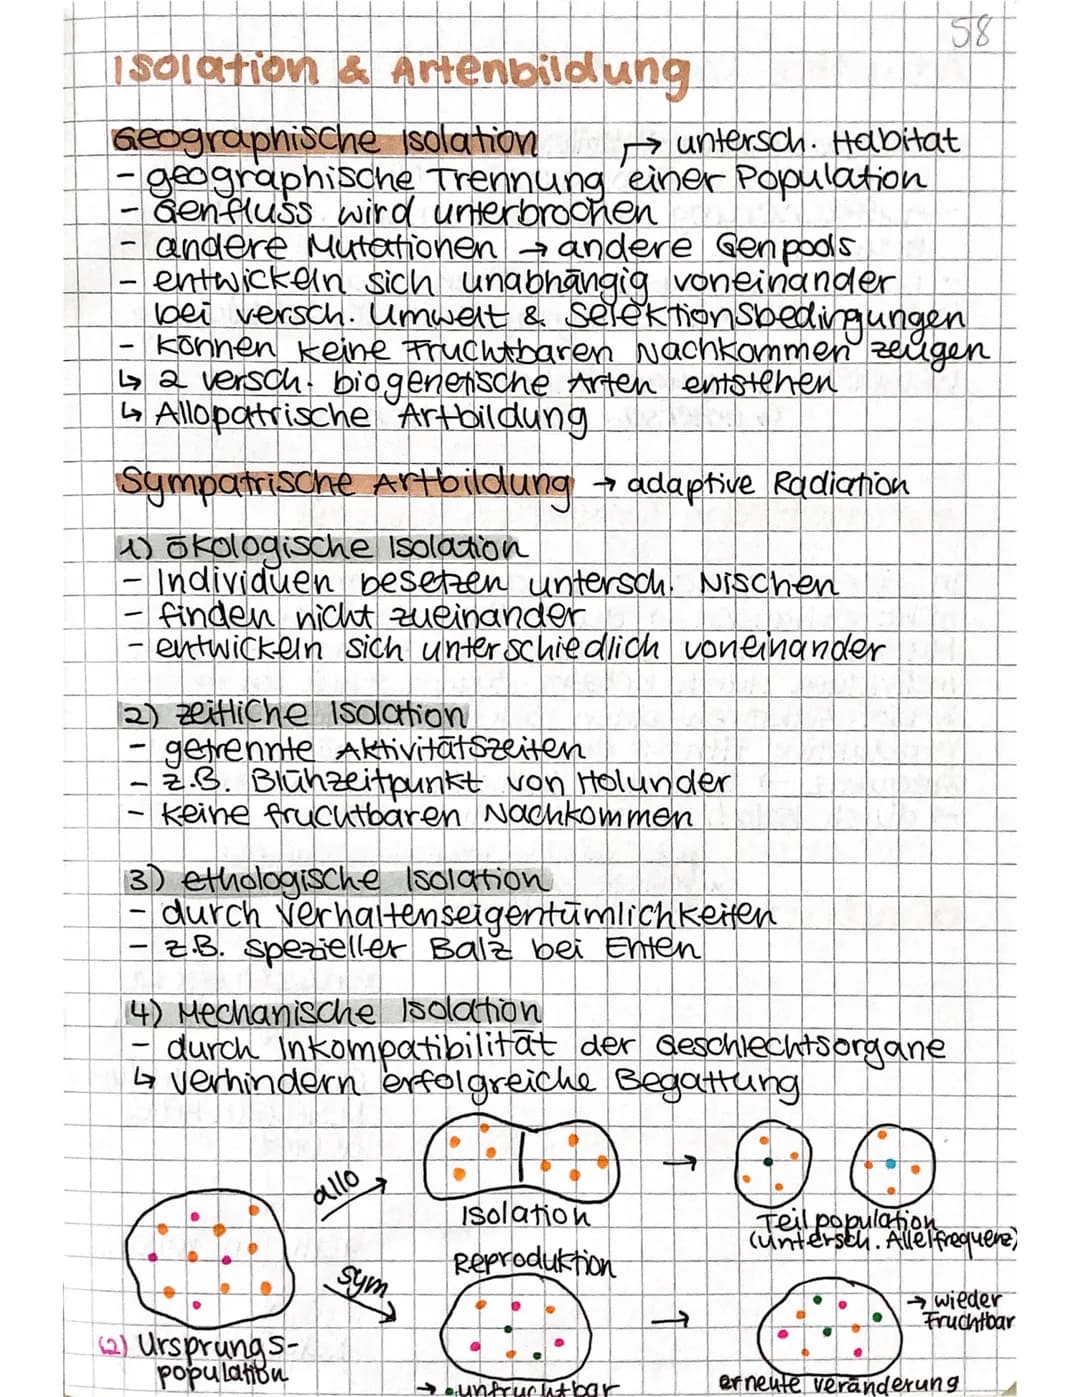 58
Isolation & Artenbildung
Geographische Isolation → untersch. Habitat
- geographische Trennung einer Population
- Genfluss wird unterbrochen
- andere Mutationen → andere Genpools
- entwickeln sich unabhängig voneinander
bei versch. Umwelt & Selektionsbedingungen
- können keine Fruchtbaren Nachkommen zeugen
↳ 2 versch. biogenetische Arten entstehen
↳ Allopatrische Artbildung
Sympatrische Artbildung → adaptive Radiation
1) ökologische Isolation
- Individuen besetzen untersch. Nischen
- finden nicht zueinander
- entwickeln sich unterschiedlich voneinander
2) zeitliche Isolation
- getrennte Aktivitätszeiten
- z.B. Blühzeitpunkt von Holunder
- keine fruchtbaren Nachkommen
3) ethologische Isolation
- durch Verhaltenseigentümlichkeiten
- z.B. spezieller Balz bei Enten
4) Mechanische Isolation
- durch Inkompatibilität der Geschlechtsorgane
↳ verhindern erfolgreiche Begattung
allo →
→
Isolation
Teilpopulation
(untersch. Allelfrequenz)
Reproduktion
sym
→
→ wieder
Fruchtbar
(2) Ursprungs-
population
→ • unfruchtbar
erneute veränderung